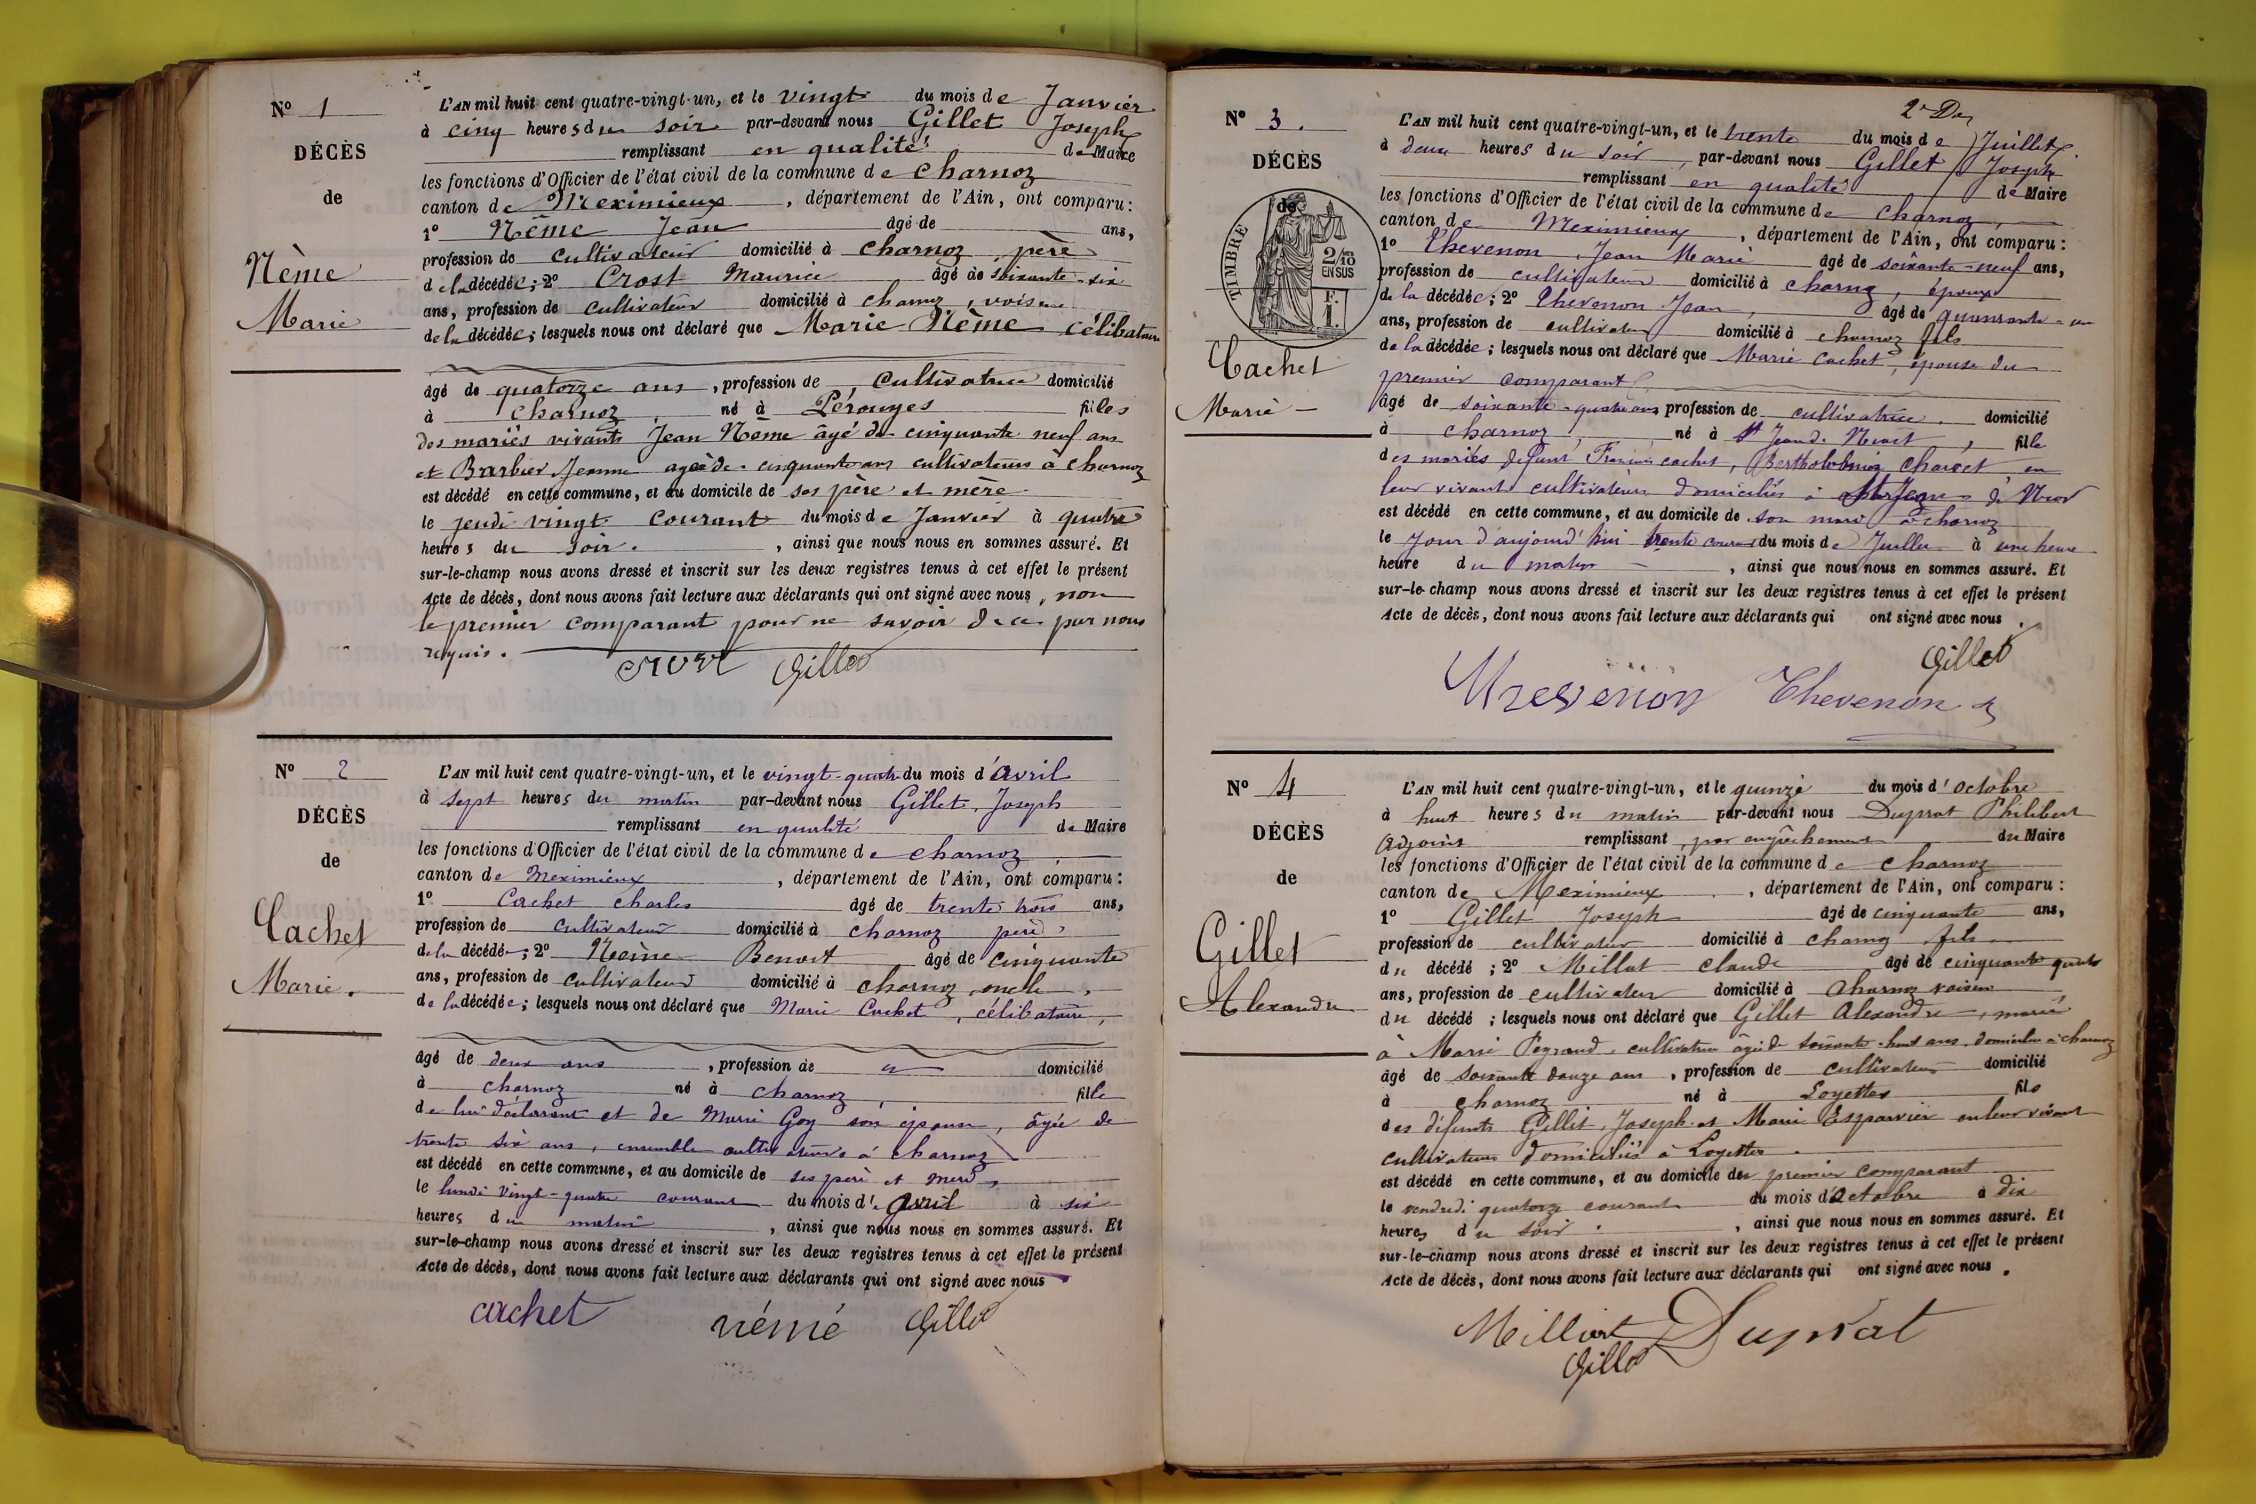 N° 1
DÉCÈS
de
Nème
Marie
L'AN mil huit cent quatre-vingt-un, et le vingt du mois de Janvier
à cinq heures du soir par-devant nous Gillet Joseph
remplissant en qualité de Maire
les fonctions d'Officier de l'état civil de la commune de Charnoz
canton de Meximieux, département de l'Ain, ont comparu :
1° Nême Jean âgé de ans,
profession de cultivateur domicilié à charnoz, père
de la décédée ; 2° Crost Maurice âgé de soixante-six
ans, profession de cultivateur domicilié à charnoz, voisin
de la décédée ; lesquels nous ont déclaré que Marie Nème célibataire
âgé de quatorze ans, profession de, Cultivatrice domicilié
à Charnoz, né à Pérouges filles
des mariés vivants Jean Nème âgé de cinquante neuf ans
et Barbier Jeanne agée de cinquante ans cultivateurs à charnoz
est décédé en cette commune, et au domicile de ses père et mère
le jeudi vingt courant du mois de Janvier à quatre
heures du soir. , ainsi que nous nous en sommes assuré. Et
sur-le-champ nous avons dressé et inscrit sur les deux registres tenus à cet effet le présent
Acte de décès, dont nous avons fait lecture aux déclarants qui ont signé avec nous, non
le premier comparant pour ne savoir de ce par nous
requis.
Gillet
N° 2
DÉCÈS
de
Cachet
Marie.
L'AN mil huit cent quatre-vingt-un, et le vingt-quatre du mois d'avril
à sept heures du matin par-devant nous Gillet, Joseph
remplissant en qualité de Maire
les fonctions d'Officier de l'état civil de la commune de charnoz
canton de Meximieux, département de l'Ain, ont comparu :
1° Cachet charles âgé de trente trois ans,
profession de cultivateur domicilié à charnoz père
de la décédée ; 2° Nème Benoit âgé de cinquante
ans, profession de cultivateur domicilié à charnoz oncle,
de la décédée ; lesquels nous ont déclaré que Marie Cachet, célibataire,
âgé de deux ans, profession de domicilié
à charnoz né à charnoz, fille
de lui déclarant et de Marie Goy son épouse, âgée de
trente six ans, ensemble cultivateurs à charnoz
est décédé en cette commune, et au domicile de ses père et mère,
le lundi vingt-quatre courant du mois d'avril à six
heures du matin, ainsi que nous nous en sommes assuré. Et
sur-le-champ nous avons dressé et inscrit sur les deux registres tenus à cet effet le présent
Acte de décès, dont nous avons fait lecture aux déclarants qui ont signé avec nous
cachet némé Gillet
N° 3.
DÉCÈS
de
TIMBRE
2/10
EN SUS
F.
1.
Cachet
Marie
L'AN mil huit cent quatre-vingt-un, et le trente du mois de Juillet
à deux heures du soir, par-devant nous Gillet Joseph
remplissant en qualité de Maire
les fonctions d'Officier de l'état civil de la commune de charnoz,
canton de Meximieux, département de l'Ain, ont comparu :
1° Thevenon, Jean Marie âgé de soixante-neuf ans,
profession de cultivateur domicilié à charnoz, époux
de la décédée ; 2° Thevenon Jean, âgé de quarante-un
ans, profession de cultivateur domicilié à charnoz fils
de la décédée ; lesquels nous ont déclaré que Marie Cachet, épouse du
premier comparant
âgé de soixante-quatre ans profession de cultivatrice domicilié
à charnoz, né à St Jean de Niost, fille
des mariés défunt François cachet, Charvet en
leur vivant cultivateurs domiciliés à St Jean de Niost
est décédé en cette commune, et au domicile de son mari à charnoz
le jour d'aujourd'hui trente courant du mois de Juillet à une heure
heure du matin, ainsi que nous nous en sommes assuré. Et
sur-le-champ nous avons dressé et inscrit sur les deux registres tenus à cet effet le présent
Acte de décès, dont nous avons fait lecture aux déclarants qui ont signé avec nous.
Gillet
Thevenon Thevenon
N° 4
DÉCÈS
de
Gillet
Alexandre
L'AN mil huit cent quatre-vingt-un, et le quinze du mois d'octobre
à huit heures du matin par-devant nous Duprat Philibert
Adjoint remplissant, par empêchement du Maire
les fonctions d'Officier de l'état civil de la commune de charnoz
canton de Meximieux, département de l'Ain, ont comparu :
1° Gillet Joseph âgé de cinquante ans,
profession de cultivateur domicilié à charnoz fils
du décédé ; 2° Millat claude âgé de cinquante quatre
ans, profession de cultivateur domicilié à charnoz voisin
du décédé ; lesquels nous ont déclaré que Gillet Alexandre, marié
à Marie Peyraud, cultivatrice agée de soixante-huit ans, domiciliée à charnoz
âgé de soixante douze ans, profession de cultivateur domicilié
à charnoz né à Loyettes fils
des défunts Gillet, Joseph et Marie Esparvier en leur vivant
cultivateurs domiciliés à Loyettes.
est décédé en cette commune, et au domicile du premier comparant
le vendredi quatorze courant du mois d'Octobre à dix
heures du soir. , ainsi que nous nous en sommes assuré. Et
sur-le-champ nous avons dressé et inscrit sur les deux registres tenus à cet effet le présent
Acte de décès, dont nous avons fait lecture aux déclarants qui ont signé avec nous.
Duprat
Gillet